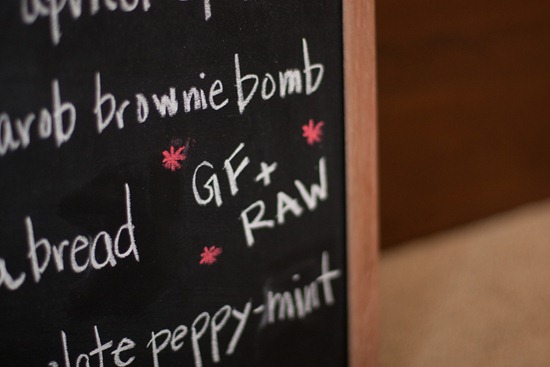 arob brownie bomb
* GF + *
RAW
a bread *
late peppy-mint